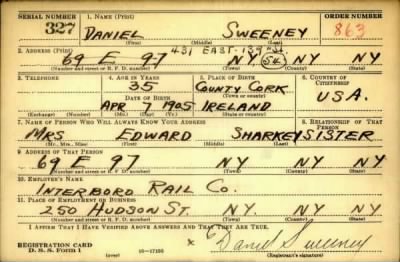 SERIAL NUMBER 1. NAME (Print) ORDER NUMBER
327 DANIEL SWEENEY 863
(First) (Middle) (Last)
431 EAST-139 St.
2. ADDRESS (Print)
69 E 97 N.Y. 54 N.Y. N.Y.
(Number and street or R. F. D. number) (Town) (County) (State)
3. TELEPHONE 4. AGE IN YEARS 5. PLACE OF BIRTH 6. COUNTRY OF CITIZENSHIP
35 COUNTY CORK
DATE OF BIRTH (Town or county)
APR 7 1905 IRELAND U.S.A.
(Exchange) (Number) (Mo.) (Day) (Yr.) (State or country)
7. NAME OF PERSON WHO WILL ALWAYS KNOW YOUR ADDRESS 8. RELATIONSHIP OF THAT PERSON
MRS EDWARD SHARKEY SISTER
(Mr., Mrs., Miss) (First) (Middle) (Last)
9. ADDRESS OF THAT PERSON
69 E 97 N.Y. N.Y. N.Y.
(Number and street or R. F. D. number) (Town) (County) (State)
10. EMPLOYER'S NAME
INTERBORO RAIL CO.
11. PLACE OF EMPLOYMENT OR BUSINESS
250 HUDSON ST. N.Y. N.Y. N.Y.
(Number and street or R. F. D. number) (Town) (County) (State)
I AFFIRM THAT I HAVE VERIFIED ABOVE ANSWERS AND THAT THEY ARE TRUE.
REGISTRATION CARD
D. S. S. Form 1 (over) 16-17105 Daniel Sweeney
(Registrant's signature)